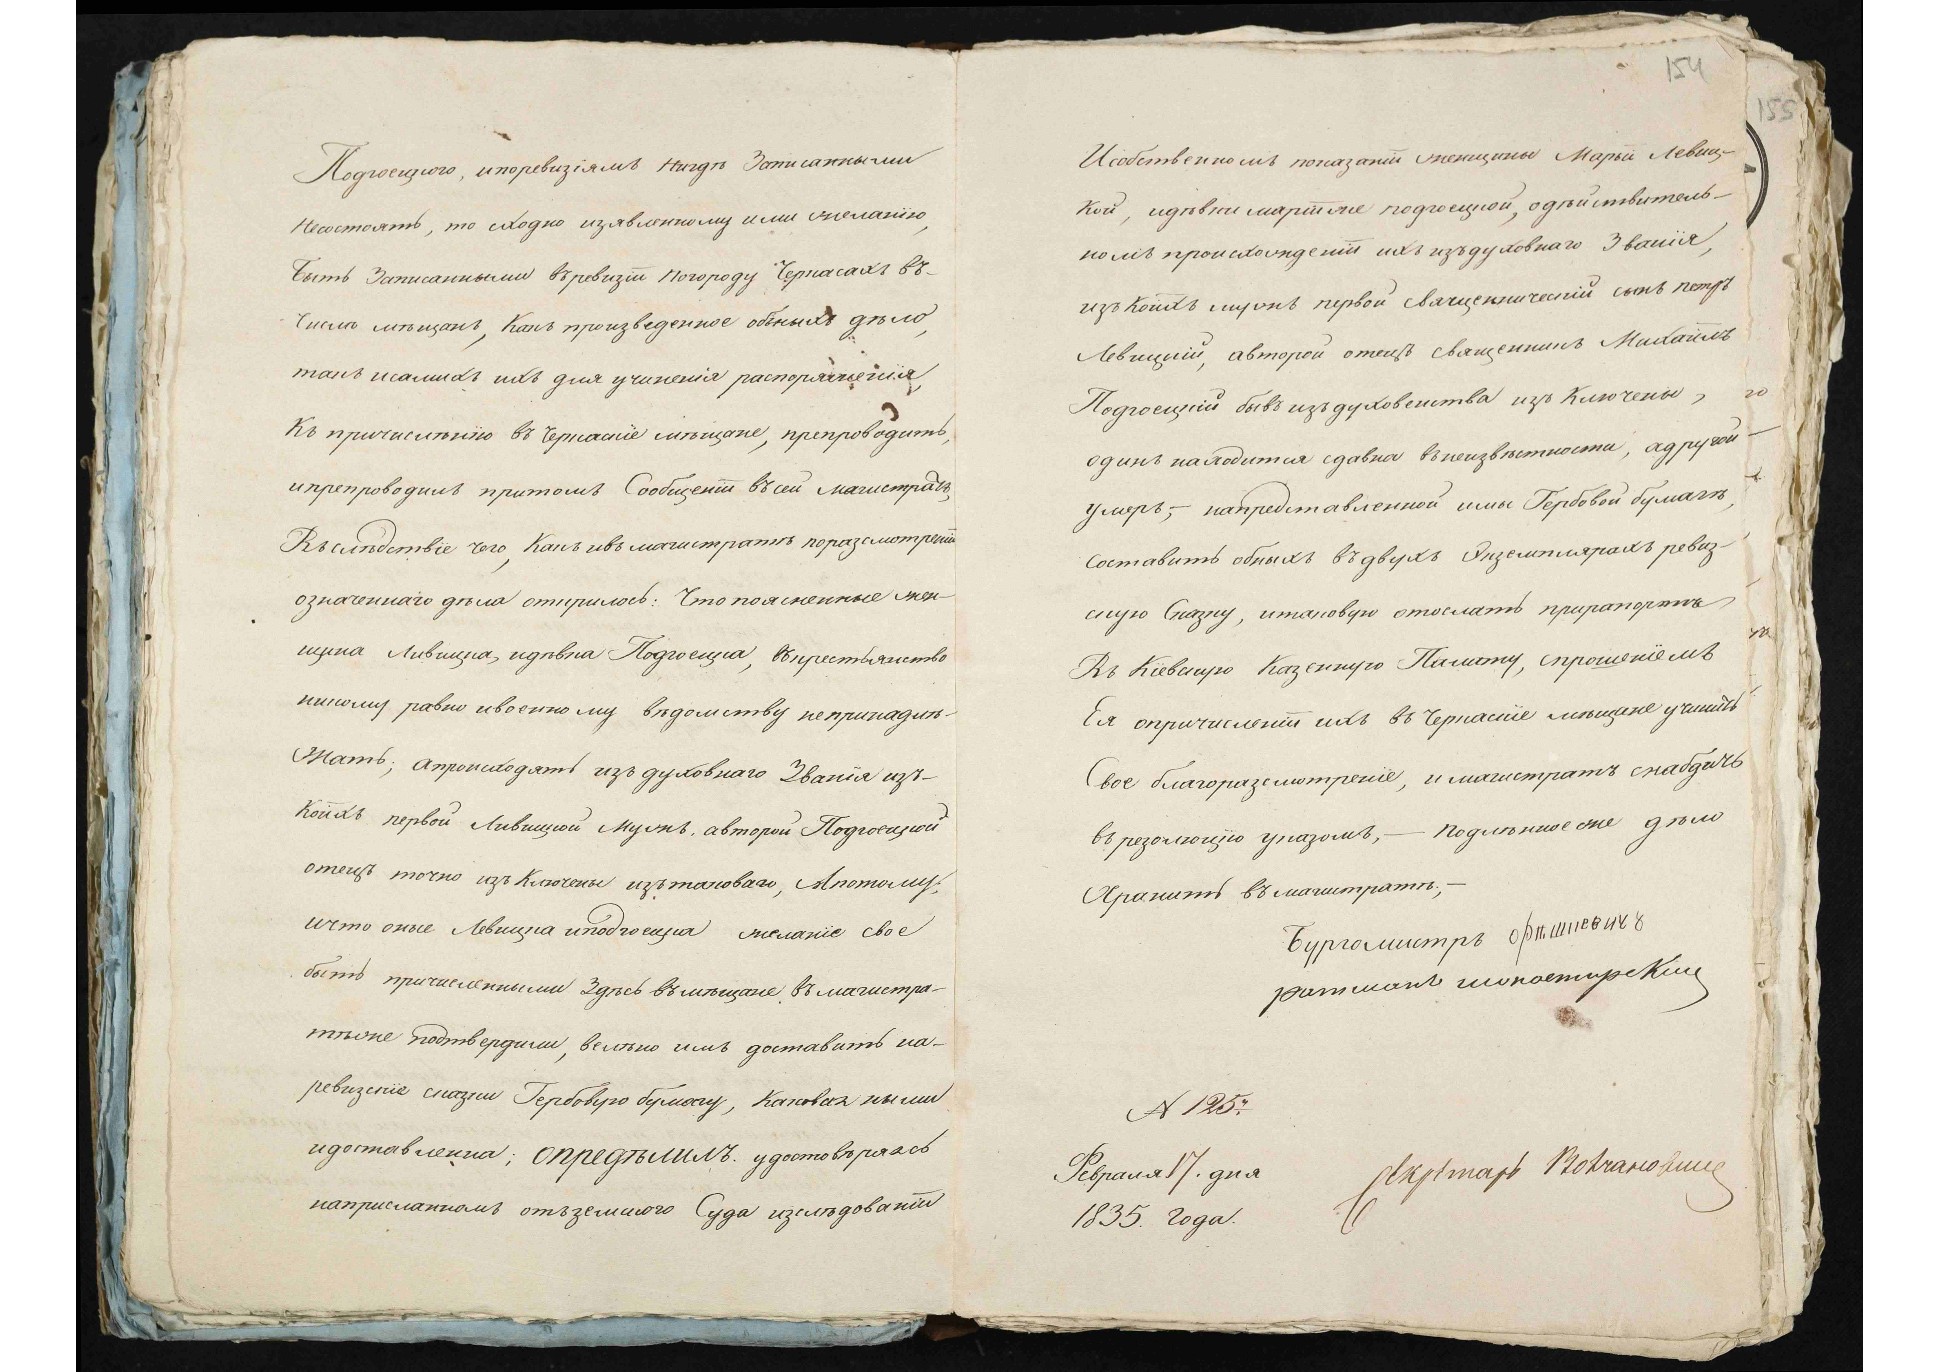 Подгоецкого, ипоревизіямъ Нигдѣ Записанными
Несостоятъ, то сходно изявленному ими желанію,
быть Записанными въревизіи погороду Черкасахъ въ-
число мѣщанъ, какъ произведенное обныхъ дѣло,
такъ исамихъ ихъ для учиненія распоряженія,
Къ причисленію въ Черкаскіе мѣщане, препроводить,
ипрепроводилъ притомъ Сообщеніи въсей магистратъ,
Въслѣдствіе чего, Какъ ивъ магистратѣ поразсмотреніи
означеннаго дѣла открилось: Что поясненные жен-
щина Ливицка, идѣвка Подгоецка, въкрестьянство
никому равно ивоенному вѣдомству непринадлѣ-
жатъ; апроисходятъ изъ духовнаго Званія изъ-
Коихъ первой Ливицкой мужъ, авторой Подгоецкой
отецъ точно изъ Ключены изътаковаго, Апотому;
ичто оные Левицка иподгоецка желаніе свое
быть причисленными Здѣсь въмѣщане, въмагистра-
тѣже подтвердили, велѣно имъ доставить на-
ревизскіе сказки Гербовую бумагу, каковая ными
идоставленна; опредѣлилъ. удостовѣряясь
наприсланномъ отъземского Суда изслѣдованіи
154
155
Исобственномъ показаніи женщины Марьи Левиц-
кой, идѣвки мартже подгоецкой, одѣйствитель-
номъ происхожденіи ихъ изъдуховнаго Званія,
изъ Коихъ мужъ первой священническій сынъ петръ
Левицкій, авторой отецъ священникъ Михаилъ
Подгоецкій бывъ изъ духовенства изъ Ключены,
одинъ находится сдавна въ неизвѣстности, адругой
умеръ,- напредставленной имы Гербовой бумагѣ,
составить обныхъ въдвухъ Экземплярахъ ревиз-
скую Сказку, итаковую отослать прирапортѣ,
Въ Кіевскую Казенную Палату, спрошеніемъ
Ея опричисленіи ихъ въ Черкаскіе мѣщане учинить
Свое благоразсмотреніе, и магистратъ снабдить
въ резолюцію указомъ,- подлѣнное же дѣло
Хранить въ магистратѣ,-
Бургомистръ
ратманъ монастирскій
N 125.
Февраля 17. дня
1835. Года.
Секретарь